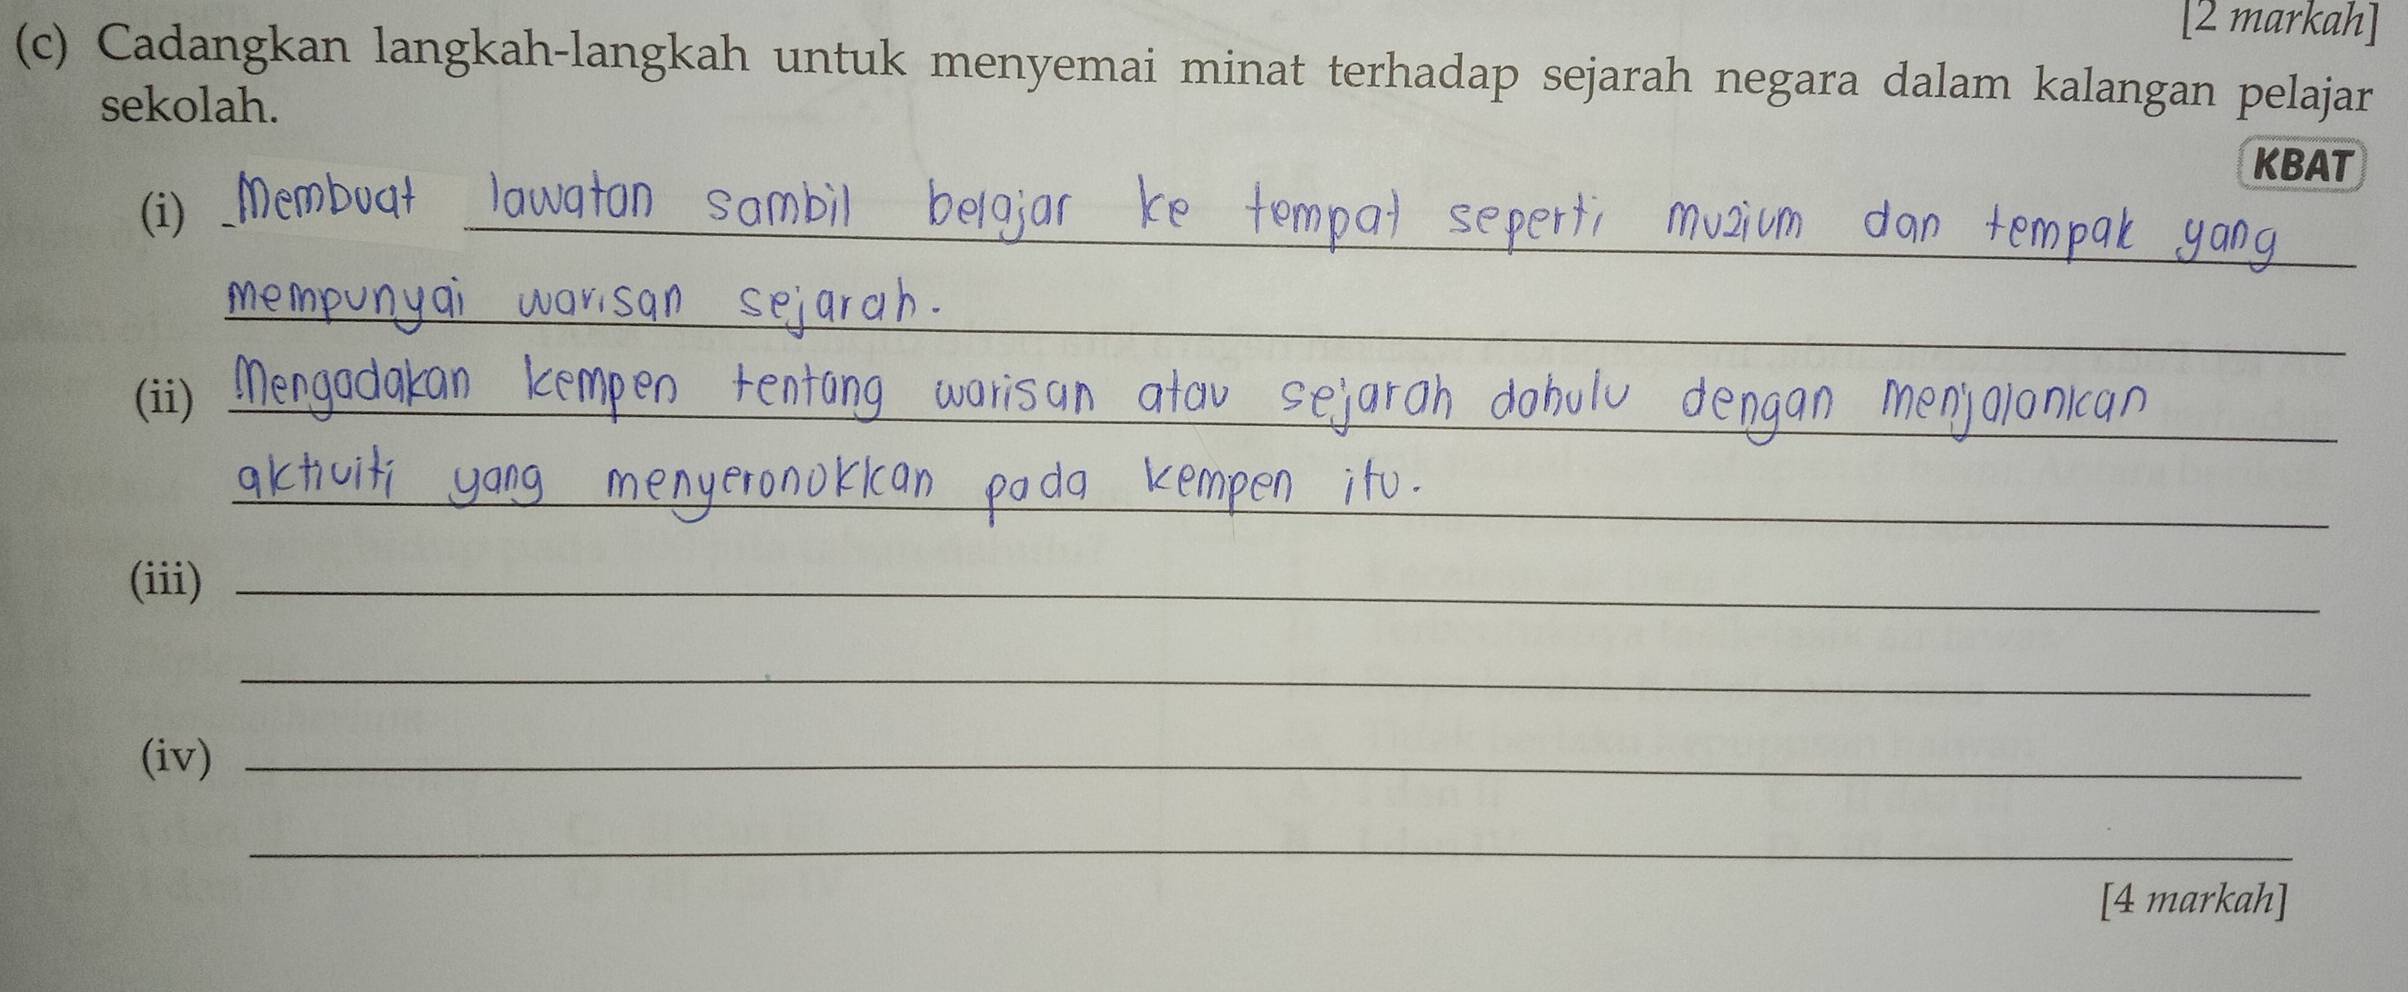 [2 markah]
(c) Cadangkan langkah-langkah untuk menyemai minat terhadap sejarah negara dalam kalangan pelajar
sekolah.
KBAT
(i) Membuat lawatan sambil belajar ke tempat seperti muzium dan tempak yang
mempunyai warisan sejarah.
(ii) Mengadakan kempen tentang warisan atau sejarah dahulu dengan menjalankan
aktiviti yang menyeronokkan pada kempen itu.
(iii)
(iv)
[4 markah]